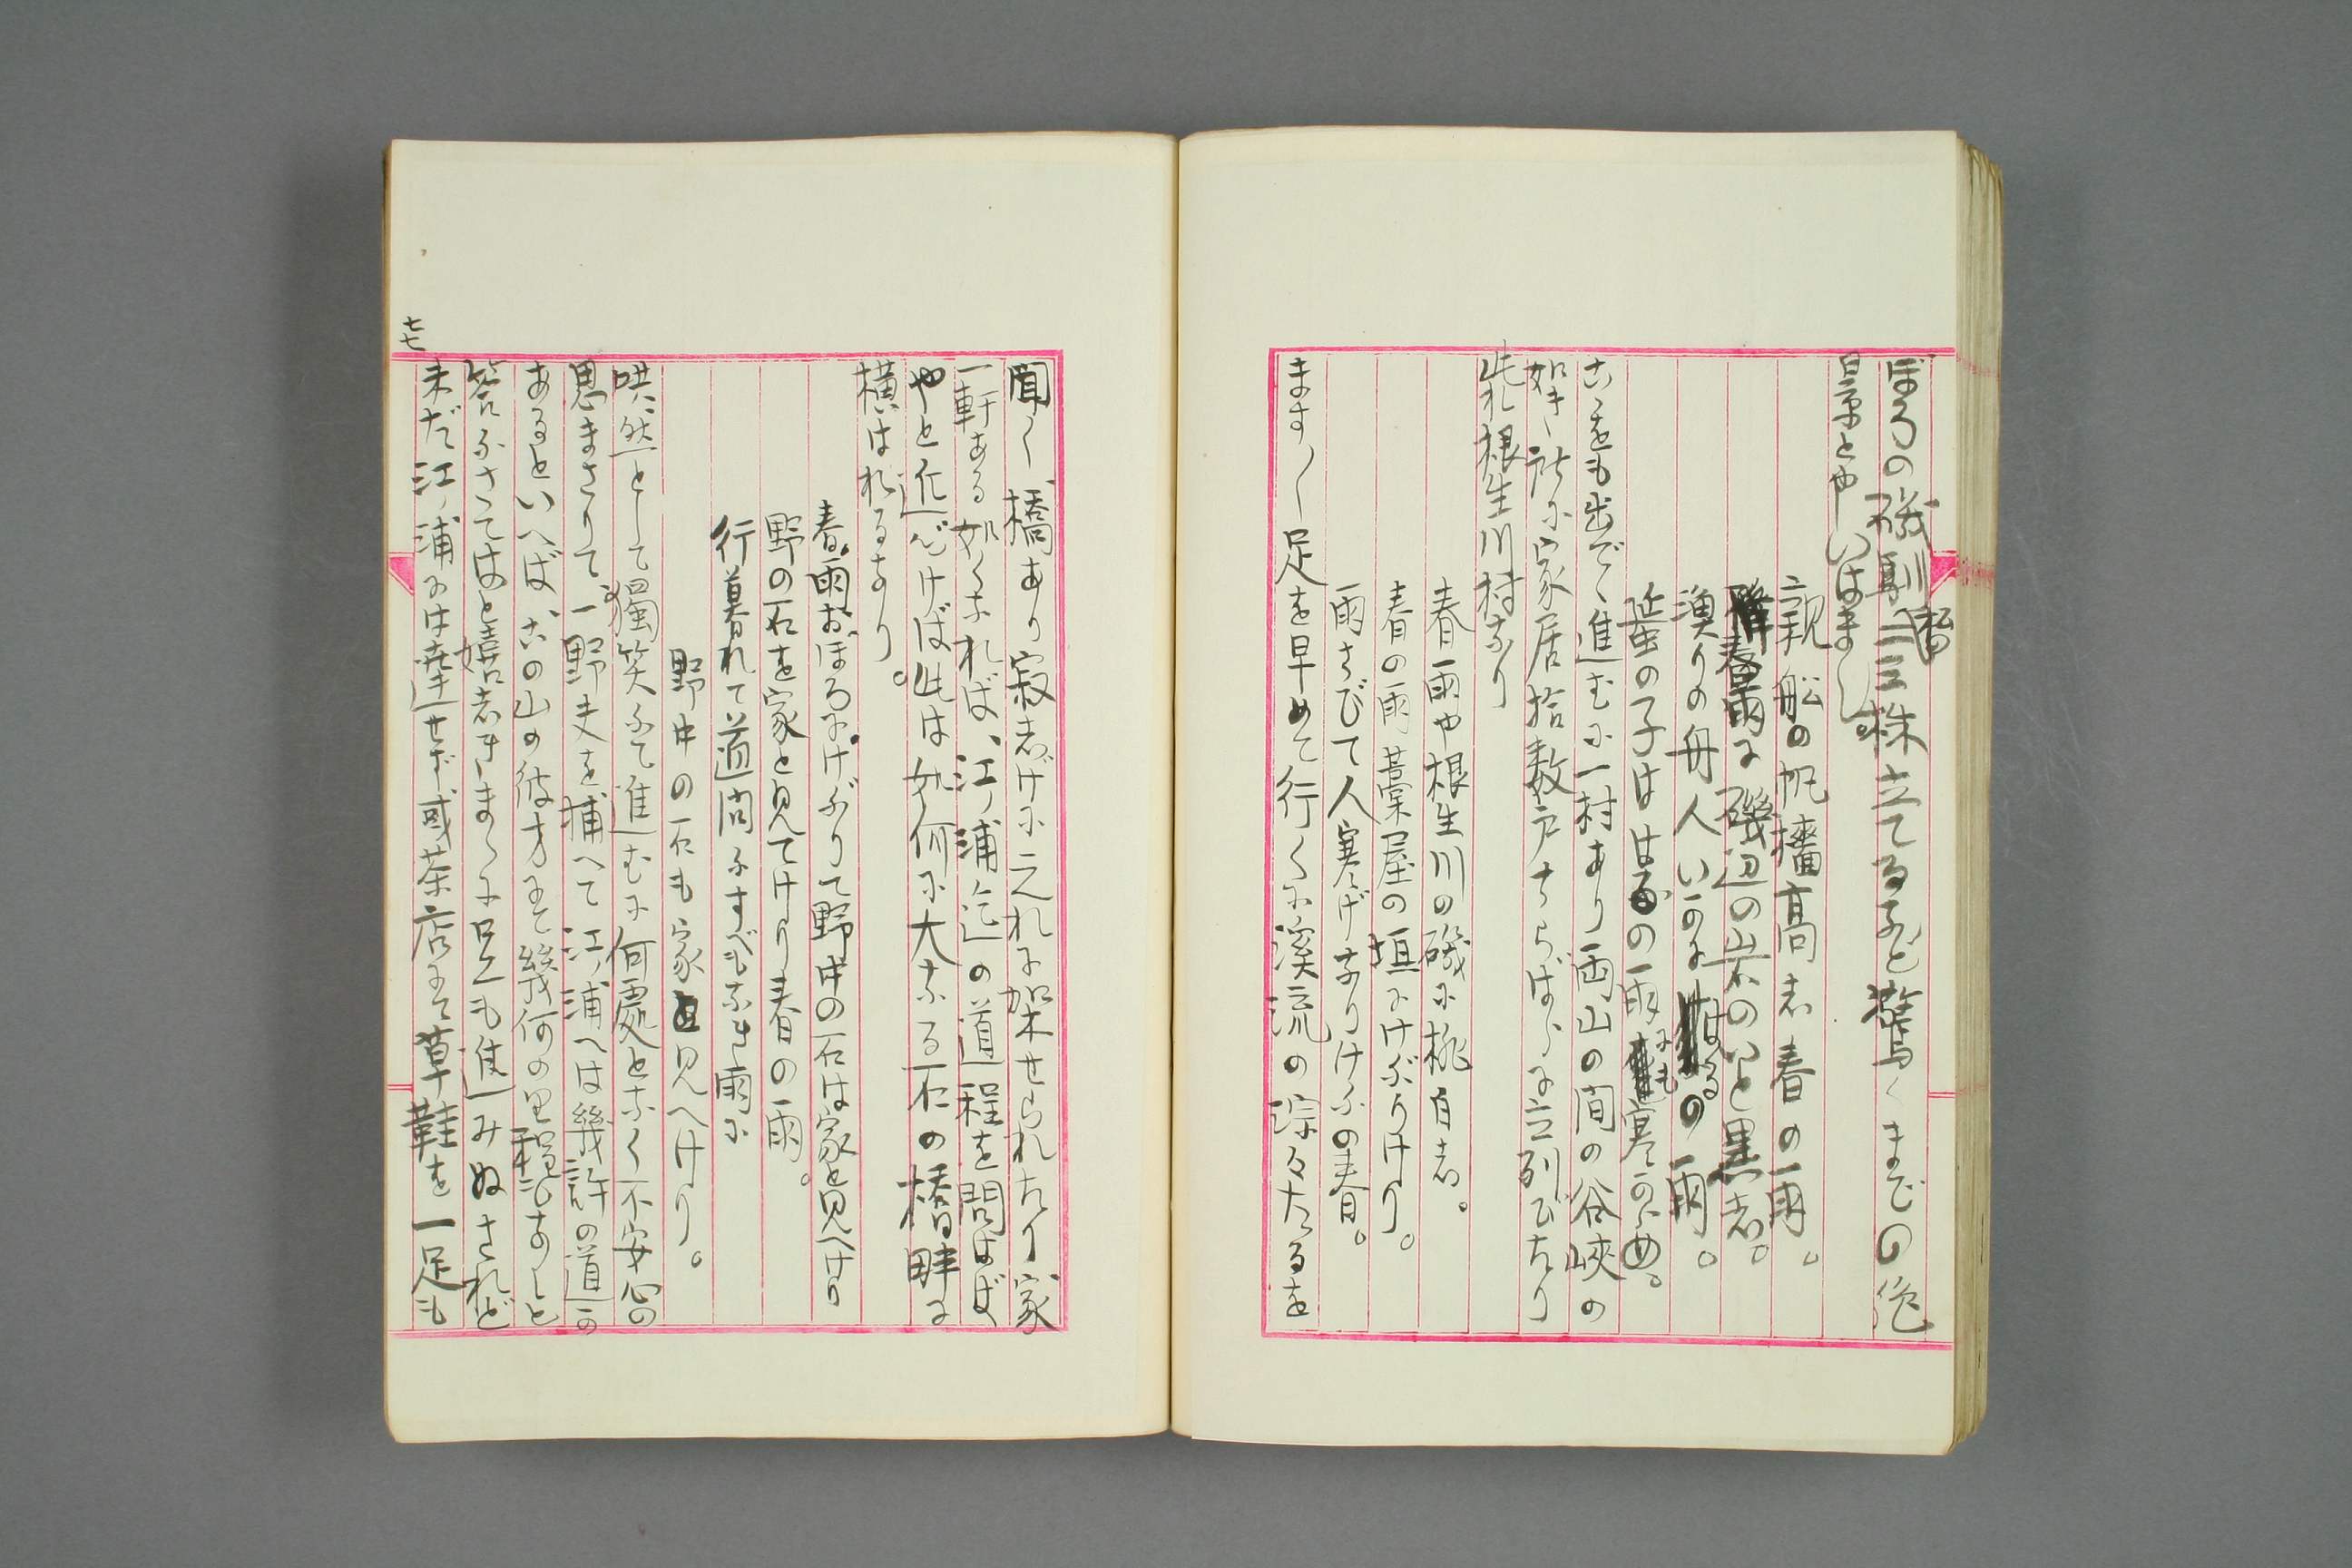 ぼろの磯馴松二三株立てるなど驚くまでの絶
景とやいはまし。
親船の帆檣高き春の雨。
春雨に磯辺の岩のいと黒き。
漁りの舟人いかにはるの雨。
蜑の子ははるの雨にも寒からめ。
こゝをも出でゝ進むに一村あり両山の間の谷峡の
如き所に家居拾数戸ちらばらに立列びたり
此れ根生川村なり
春雨や根生川の磯に桃白き。
春の雨藁屋の垣にけぶりけり。
雨さびて人寒げなりけふの春。
ます〳〵足を早めて行くに溪流の淙々たるを
聞く、橋あり寂しげに之れに架せられたり家
一軒ある如くなれば、江ノ浦迄の道程を問はば
やと近づけば此は如何に大なる石の橋畔に
横はれるなり。
春雨おぼろにけぶりて野中の石は家と見へけり
野の石を家と見てけり春の雨。
行暮れて道問ふすべもなき雨に
野中の石も家と見へけり。
哄然として獨笑ふて進むに何處となく不安心の
思まさりて一野夫を捕へて江ノ浦へは幾許の道か
あるといへばこの山の彼方にて幾何の里程もなしと
答ふさてはと嬉しきまゝに足も進みぬされど
未だ江ノ浦には達せず或茶店にて草鞋を一足も
七七